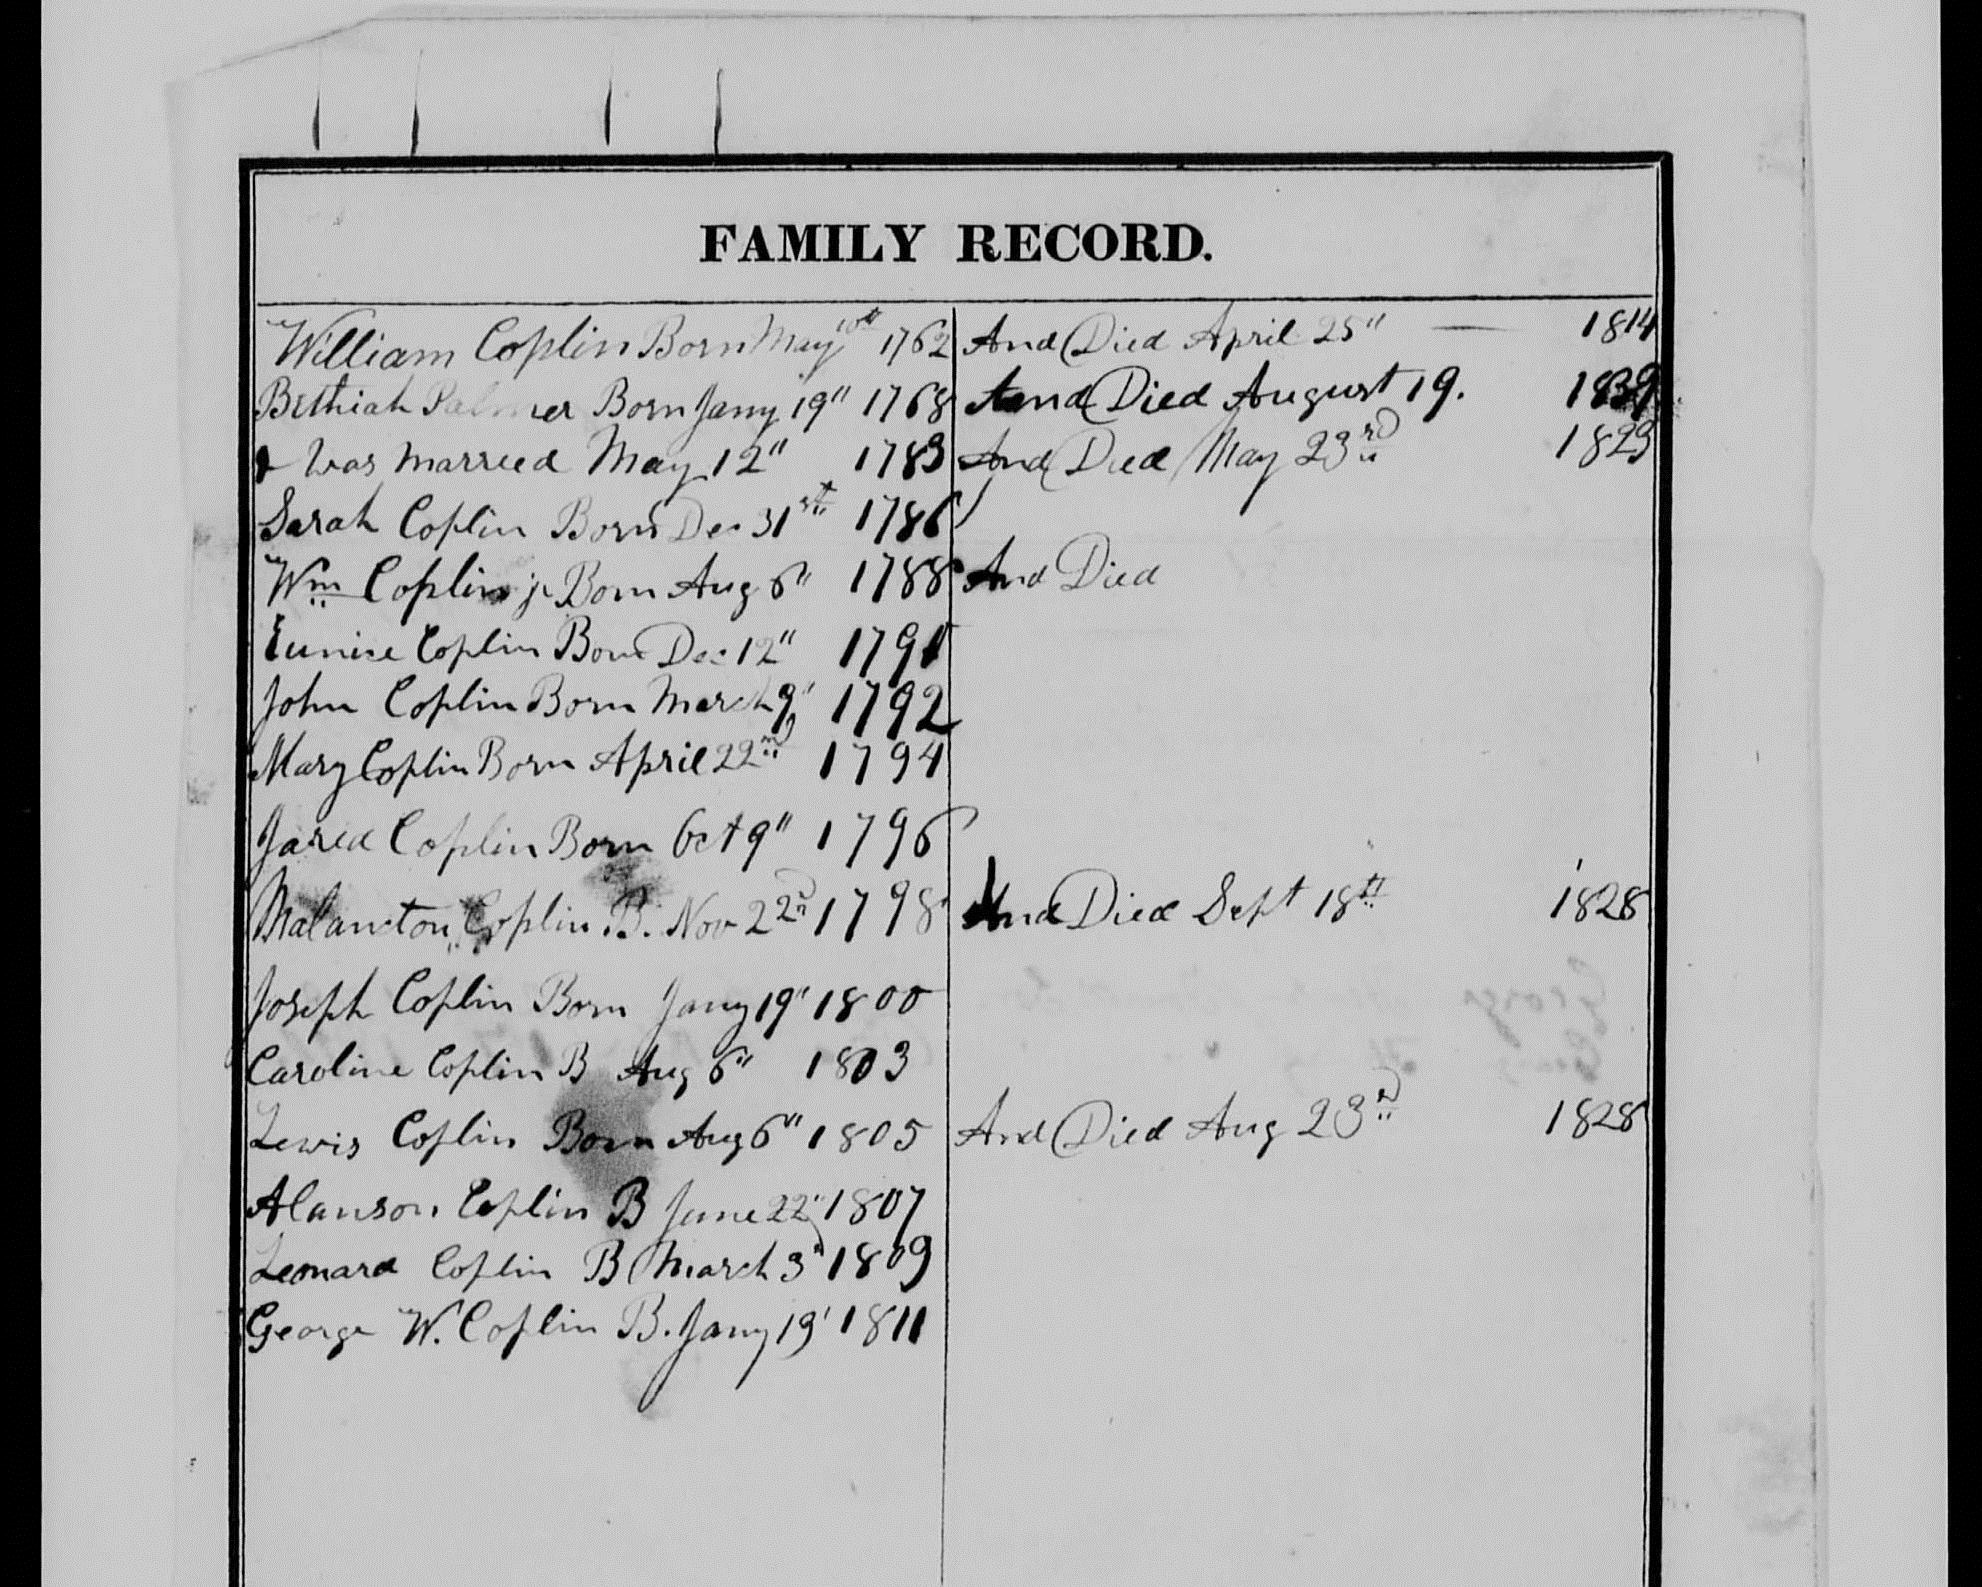 FAMILY RECORD.
William Coplin Born May 10th 1762 And Died April 25" — 1814
Bethiah Palmer Born Jany 19" 1768 And Died August 19. 1839
& Was Married May 12" 1783 And Died May 23rd 1823
Sarah Coplin Born Dec 31st 1786
Wm Coplin jr Born Aug 6" 1788 And Died
Eunice Coplin Born Dec 12" 1791
John Coplin Born March 9" 1792
Mary Coplin Born April 22nd 1794
Jared Coplin Born Oct 9" 1796
Malancton Coplin B. Nov 22n 1798 And Died Sept 18th 1828
Joseph Coplin Born Jany 19" 1800
Caroline Coplin B Aug 6" 1803
Lewis Coplin Born Aug 6" 1805 And Died Aug 23rd 1828
Alanson Coplin B June 22" 1807
Leonard Coplin B March 3d 1809
George W. Coplin B. Jany 19' 1811